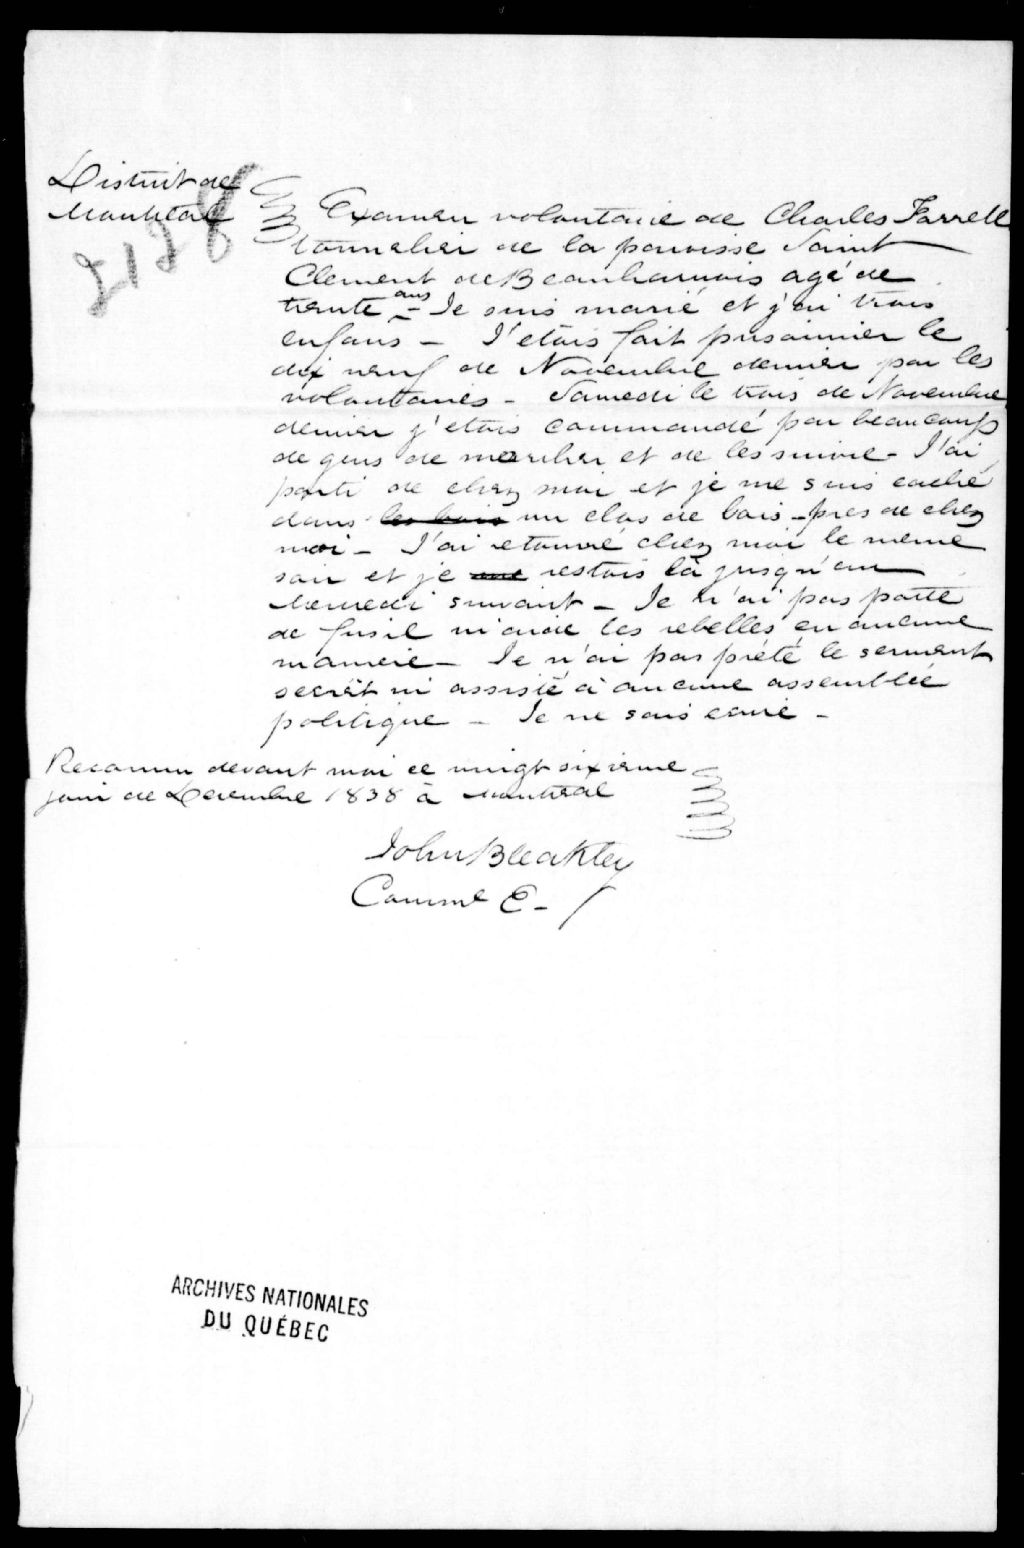 District de
Montréal
2128
Examen volontaire de Charles Farrell
tonnelier de la paroisse Saint
Clement de Beauharnois agé de
trente ans - Je suis marié et j'ai trois
enfans - J'etois fait prisonnier le
dix neuf de Novembre dernier par les
volontaires - Samedi le trois de Novembre
dernier j'etois commandé par beaucoup
de gens de marcher et de les suivre - J'ai
parti de chez moi et je me suis caché
dans les bois un clos de bois - pres de chez
moi - J'ai retourné chez moi le meme
soir et je me restois là jusqu'au
Mercredi suivant - Je n'ai pas porté
de fusil ni aidé les rebelles en aucune
maniere - Je n'ai pas prété le serment
secrèt ni assisté à aucune assemblée
politique - Je ne sais ecrire -
Reconnu devant moi ce vingt sixieme
jour de Decembre 1838 à Montréal
John Bleakley
Comme E -
ARCHIVES NATIONALES
DU QUÉBEC